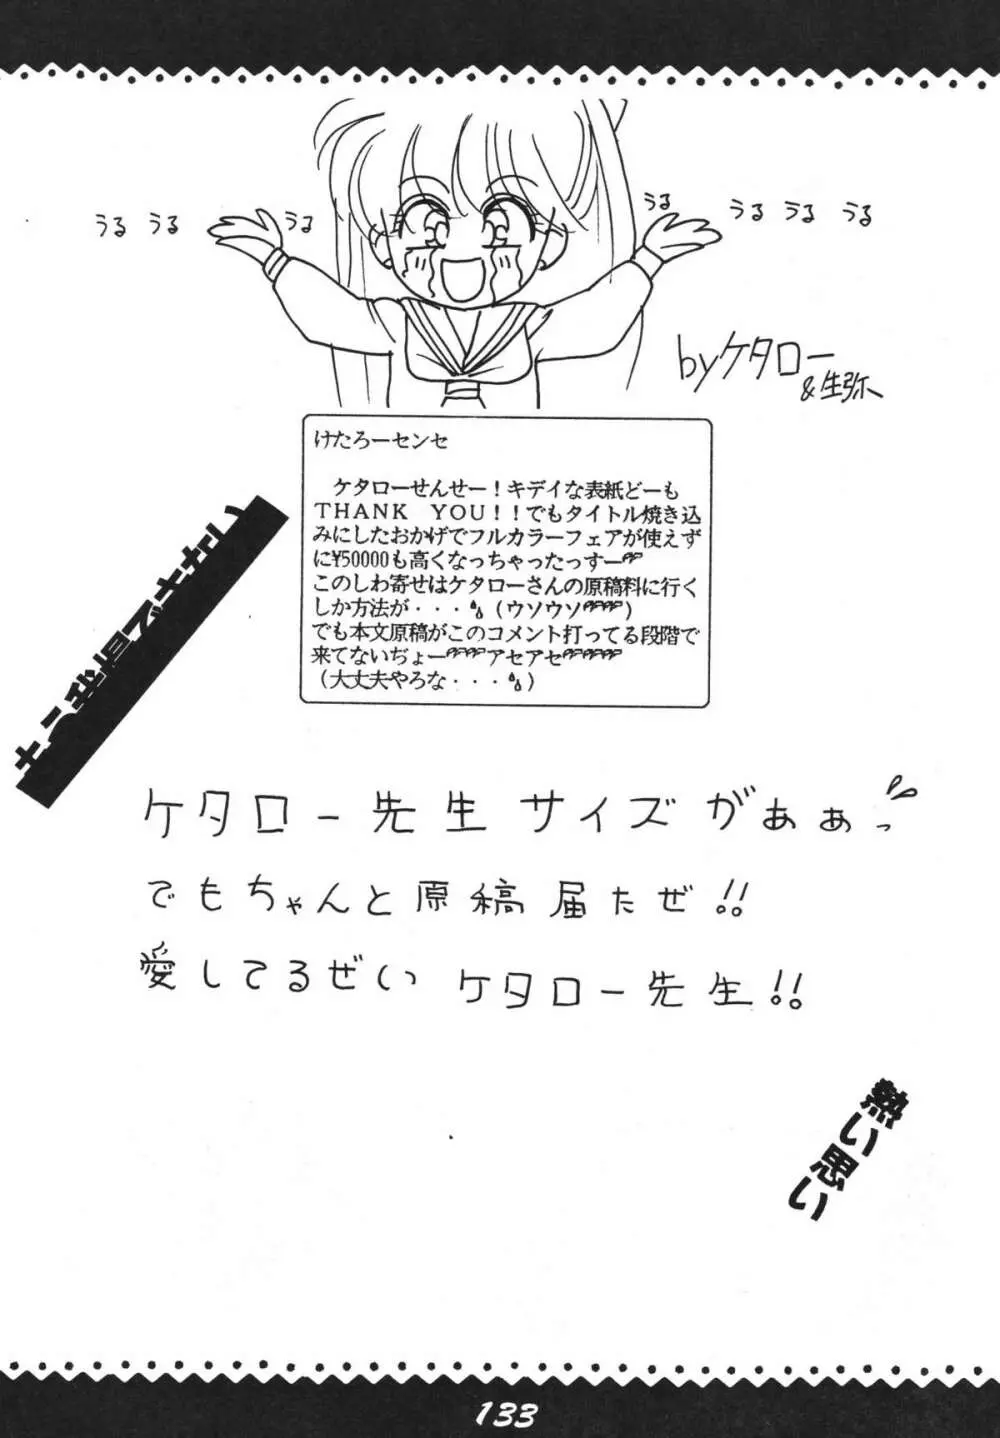 うる うる うる うる うる うる うる
byケタロー
&生弥
けたろーセンセ
ケタローせんせー！キデイな表紙どーも
THANK YOU！！でもタイトル焼き込
みにしたおかげでフルカラーフェアが使えず
に¥50000も高くなっちゃったっすー
このしわ寄せはケタローさんの原稿料に行く
しか方法が・・・（ウソウソ）
でも本文原稿がこのコメント打ってる段階で
来てないぢょーアセアセ
（大丈夫やろな・・・）
もう我慢できない
ケタロー先生サイズがぁぁっ
でもちゃんと原稿届たぜ!!
愛してるぜい ケタロー先生!!
熱い思い
133